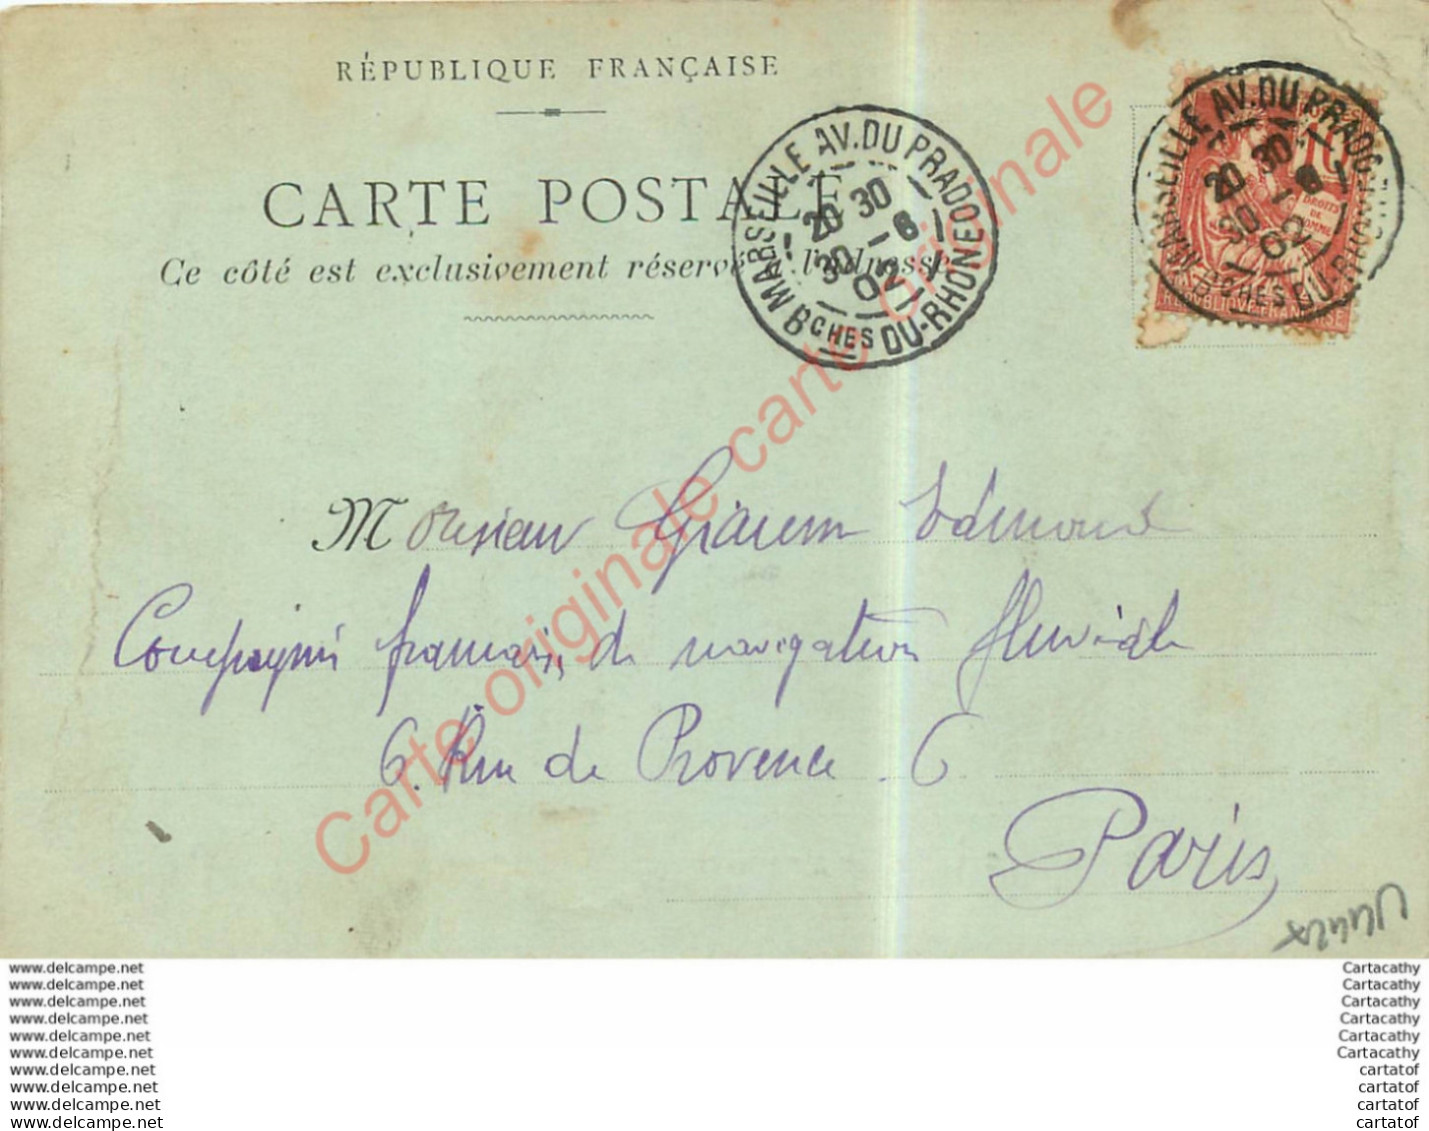 RÉPUBLIQUE FRANÇAISE
CARTE POSTALE
Ce côté est exclusivement réservé à l'adresse
MARSEILLE AV. DU PRADO
20 30
30 -6
02
BCHES DU-RHONE
MARSEILLE AV. DU PRADO
20 30
30 -6
02
BCHES DU-RHONE
10
DROITS
DE
L'HOMME
REPUBLIQUE FRANÇAISE
Carte originale carte originale
Monsieur Edmond
Compagnie française de navigation fluviale
6. Rue de Provence. 6
Paris
www.delcampe.net Cartacathy
www.delcampe.net Cartacathy
www.delcampe.net Cartacathy
www.delcampe.net Cartacathy
www.delcampe.net Cartacathy
www.delcampe.net Cartacathy
www.delcampe.net cartatof
www.delcampe.net cartatof
www.delcampe.net cartatof
www.delcampe.net cartatof